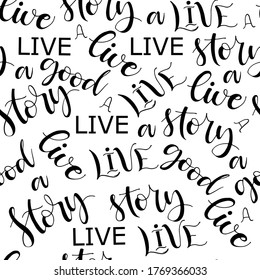 LIVE A live LIVE story
a good a LIVE a live
story LIVE a story A
live LIVE good
a a
story story LIVE A
LIVE LIVE
shutterstock.com · 1769366033